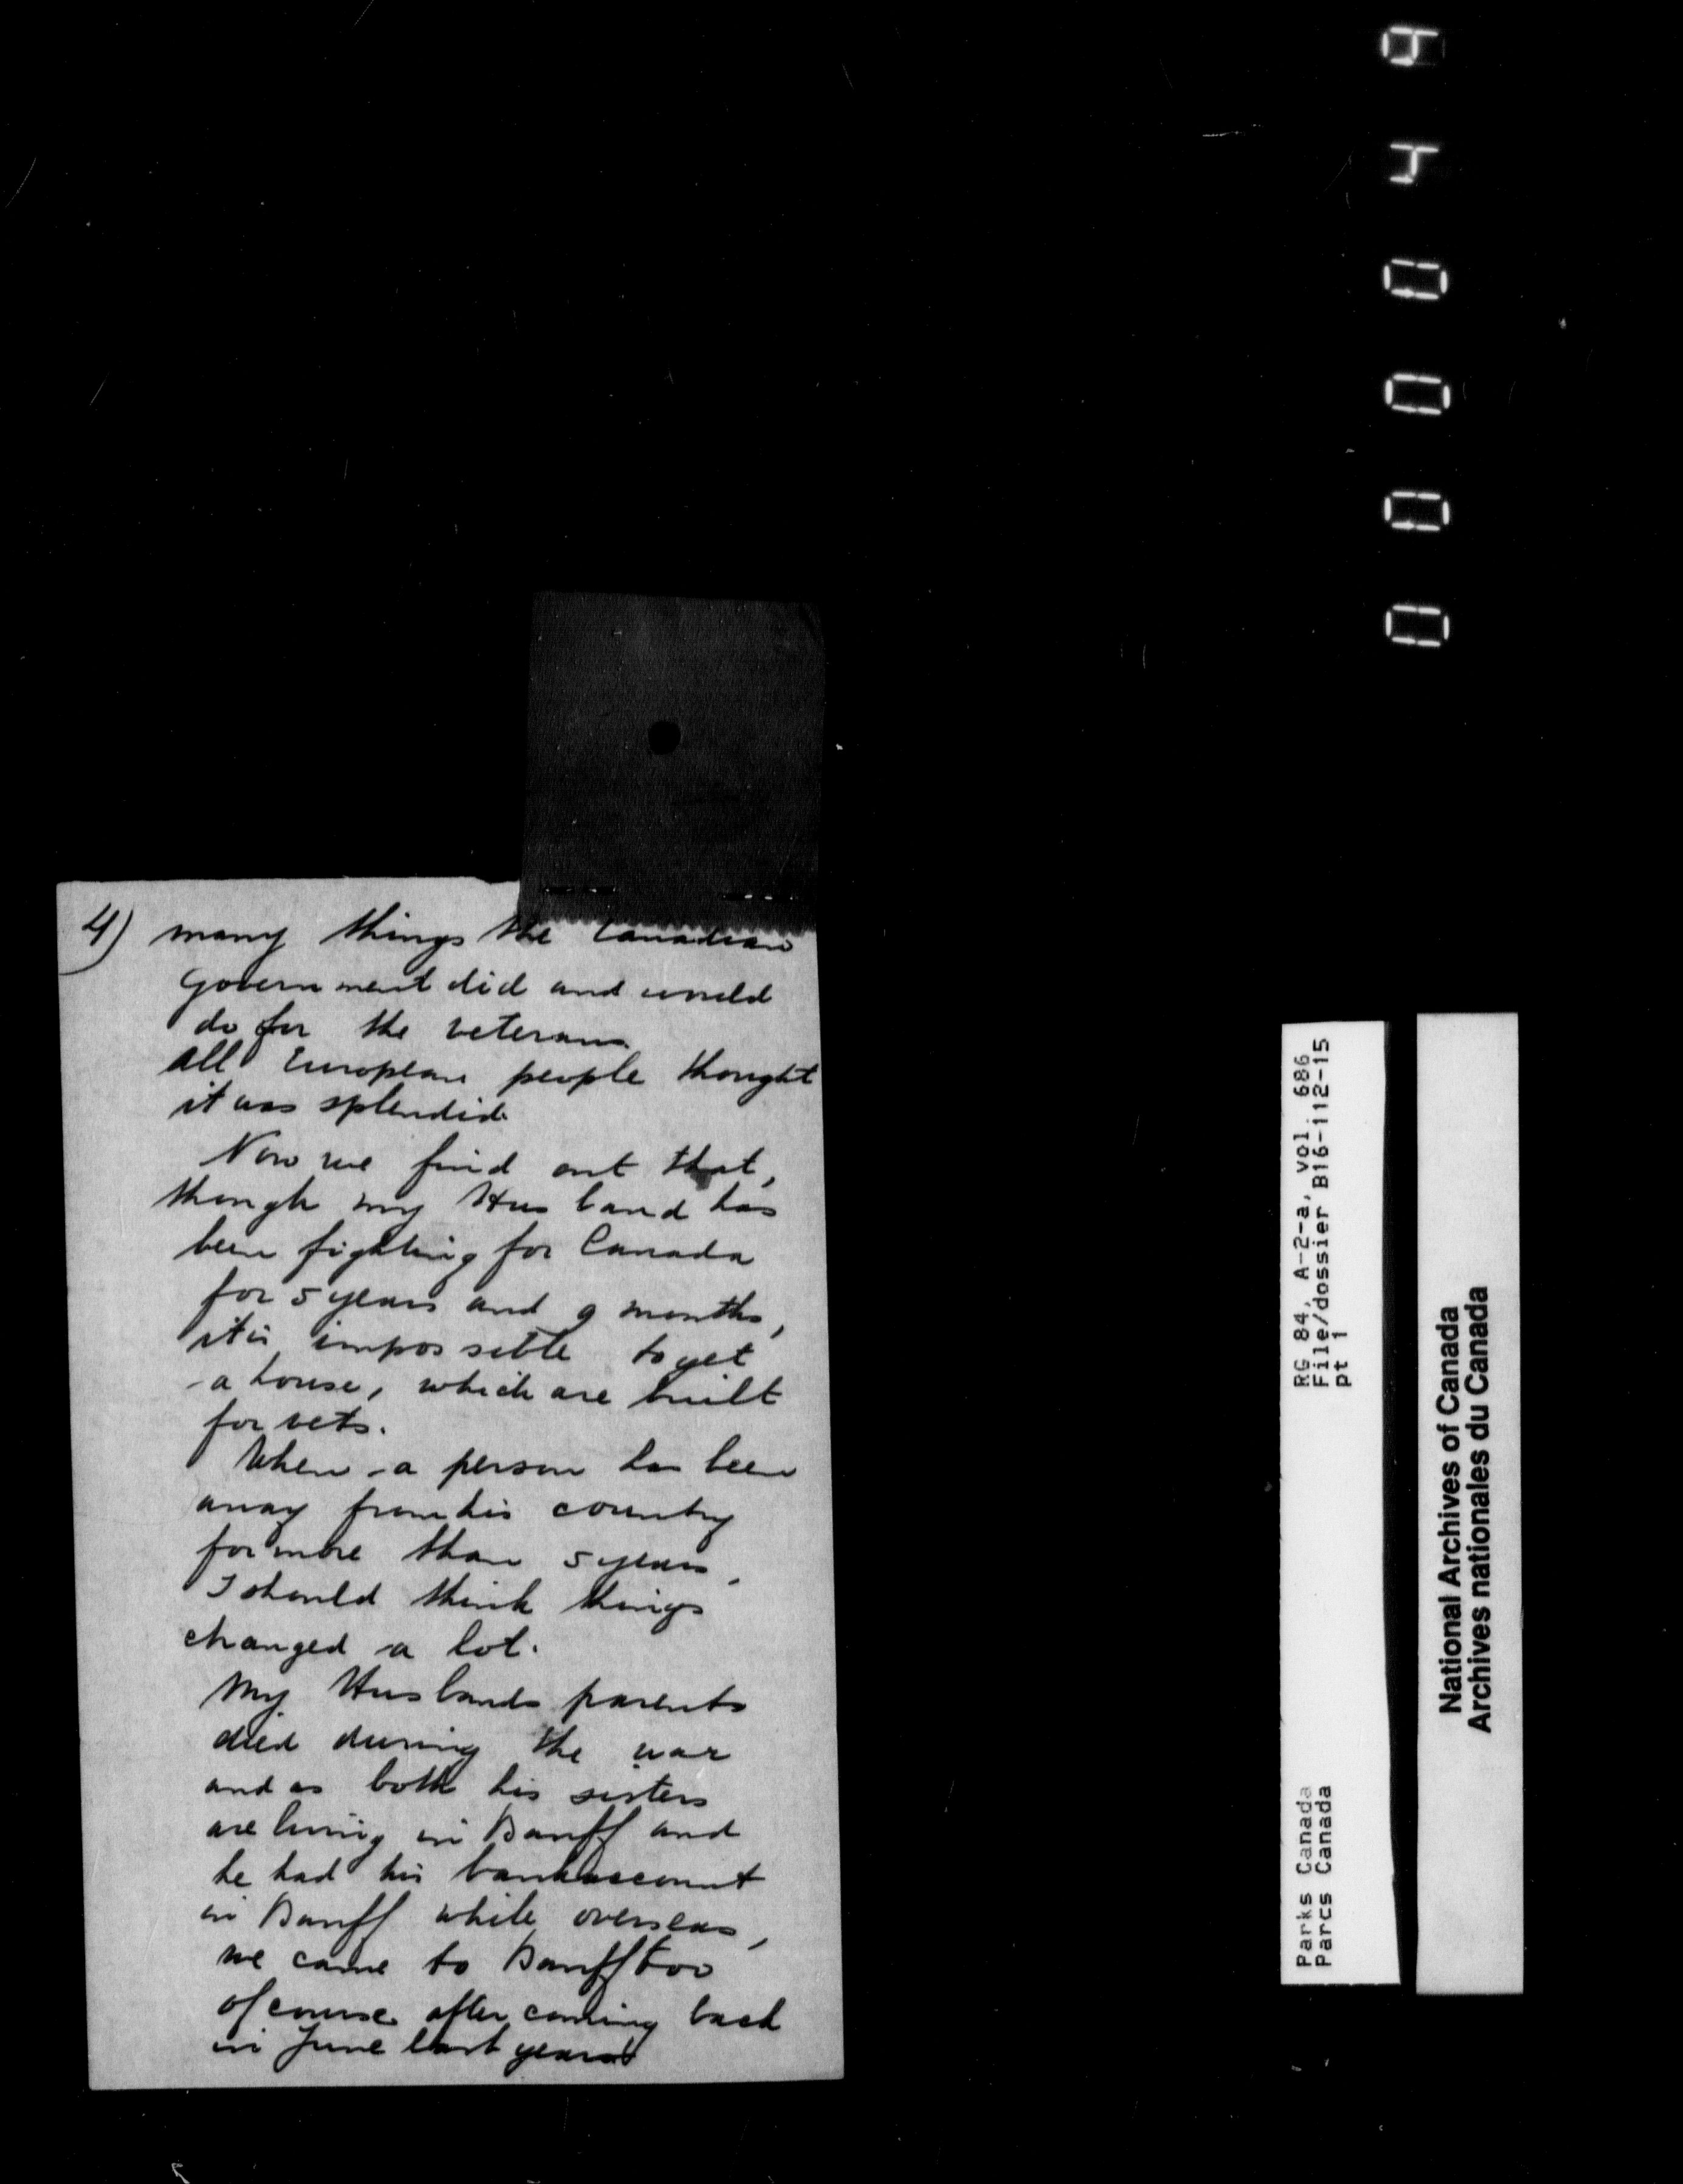 4) many things the Canadian
Government did and would
do for the veterans.
all European people thought
it was splendid.
Now we find out that,
though my Husband has
been fighting for Canada
for 5 years and 9 months,
it is impossible to get
a house, which are built
for vets.
When a person has been
away from his country
for more than 5 years,
I should think things
changed a lot.
My Husbands parents
died during the war
and as both his sisters
are living in Banff and
he had his bankaccount
in Banff while overseas,
we came to Banff too
of course after coming back
in June last year
RG 84, A-2-a, vol. 686
File/dossier B16-112-15
pt 1
Parks Canada
Parcs Canada
National Archives of Canada
Archives nationales du Canada